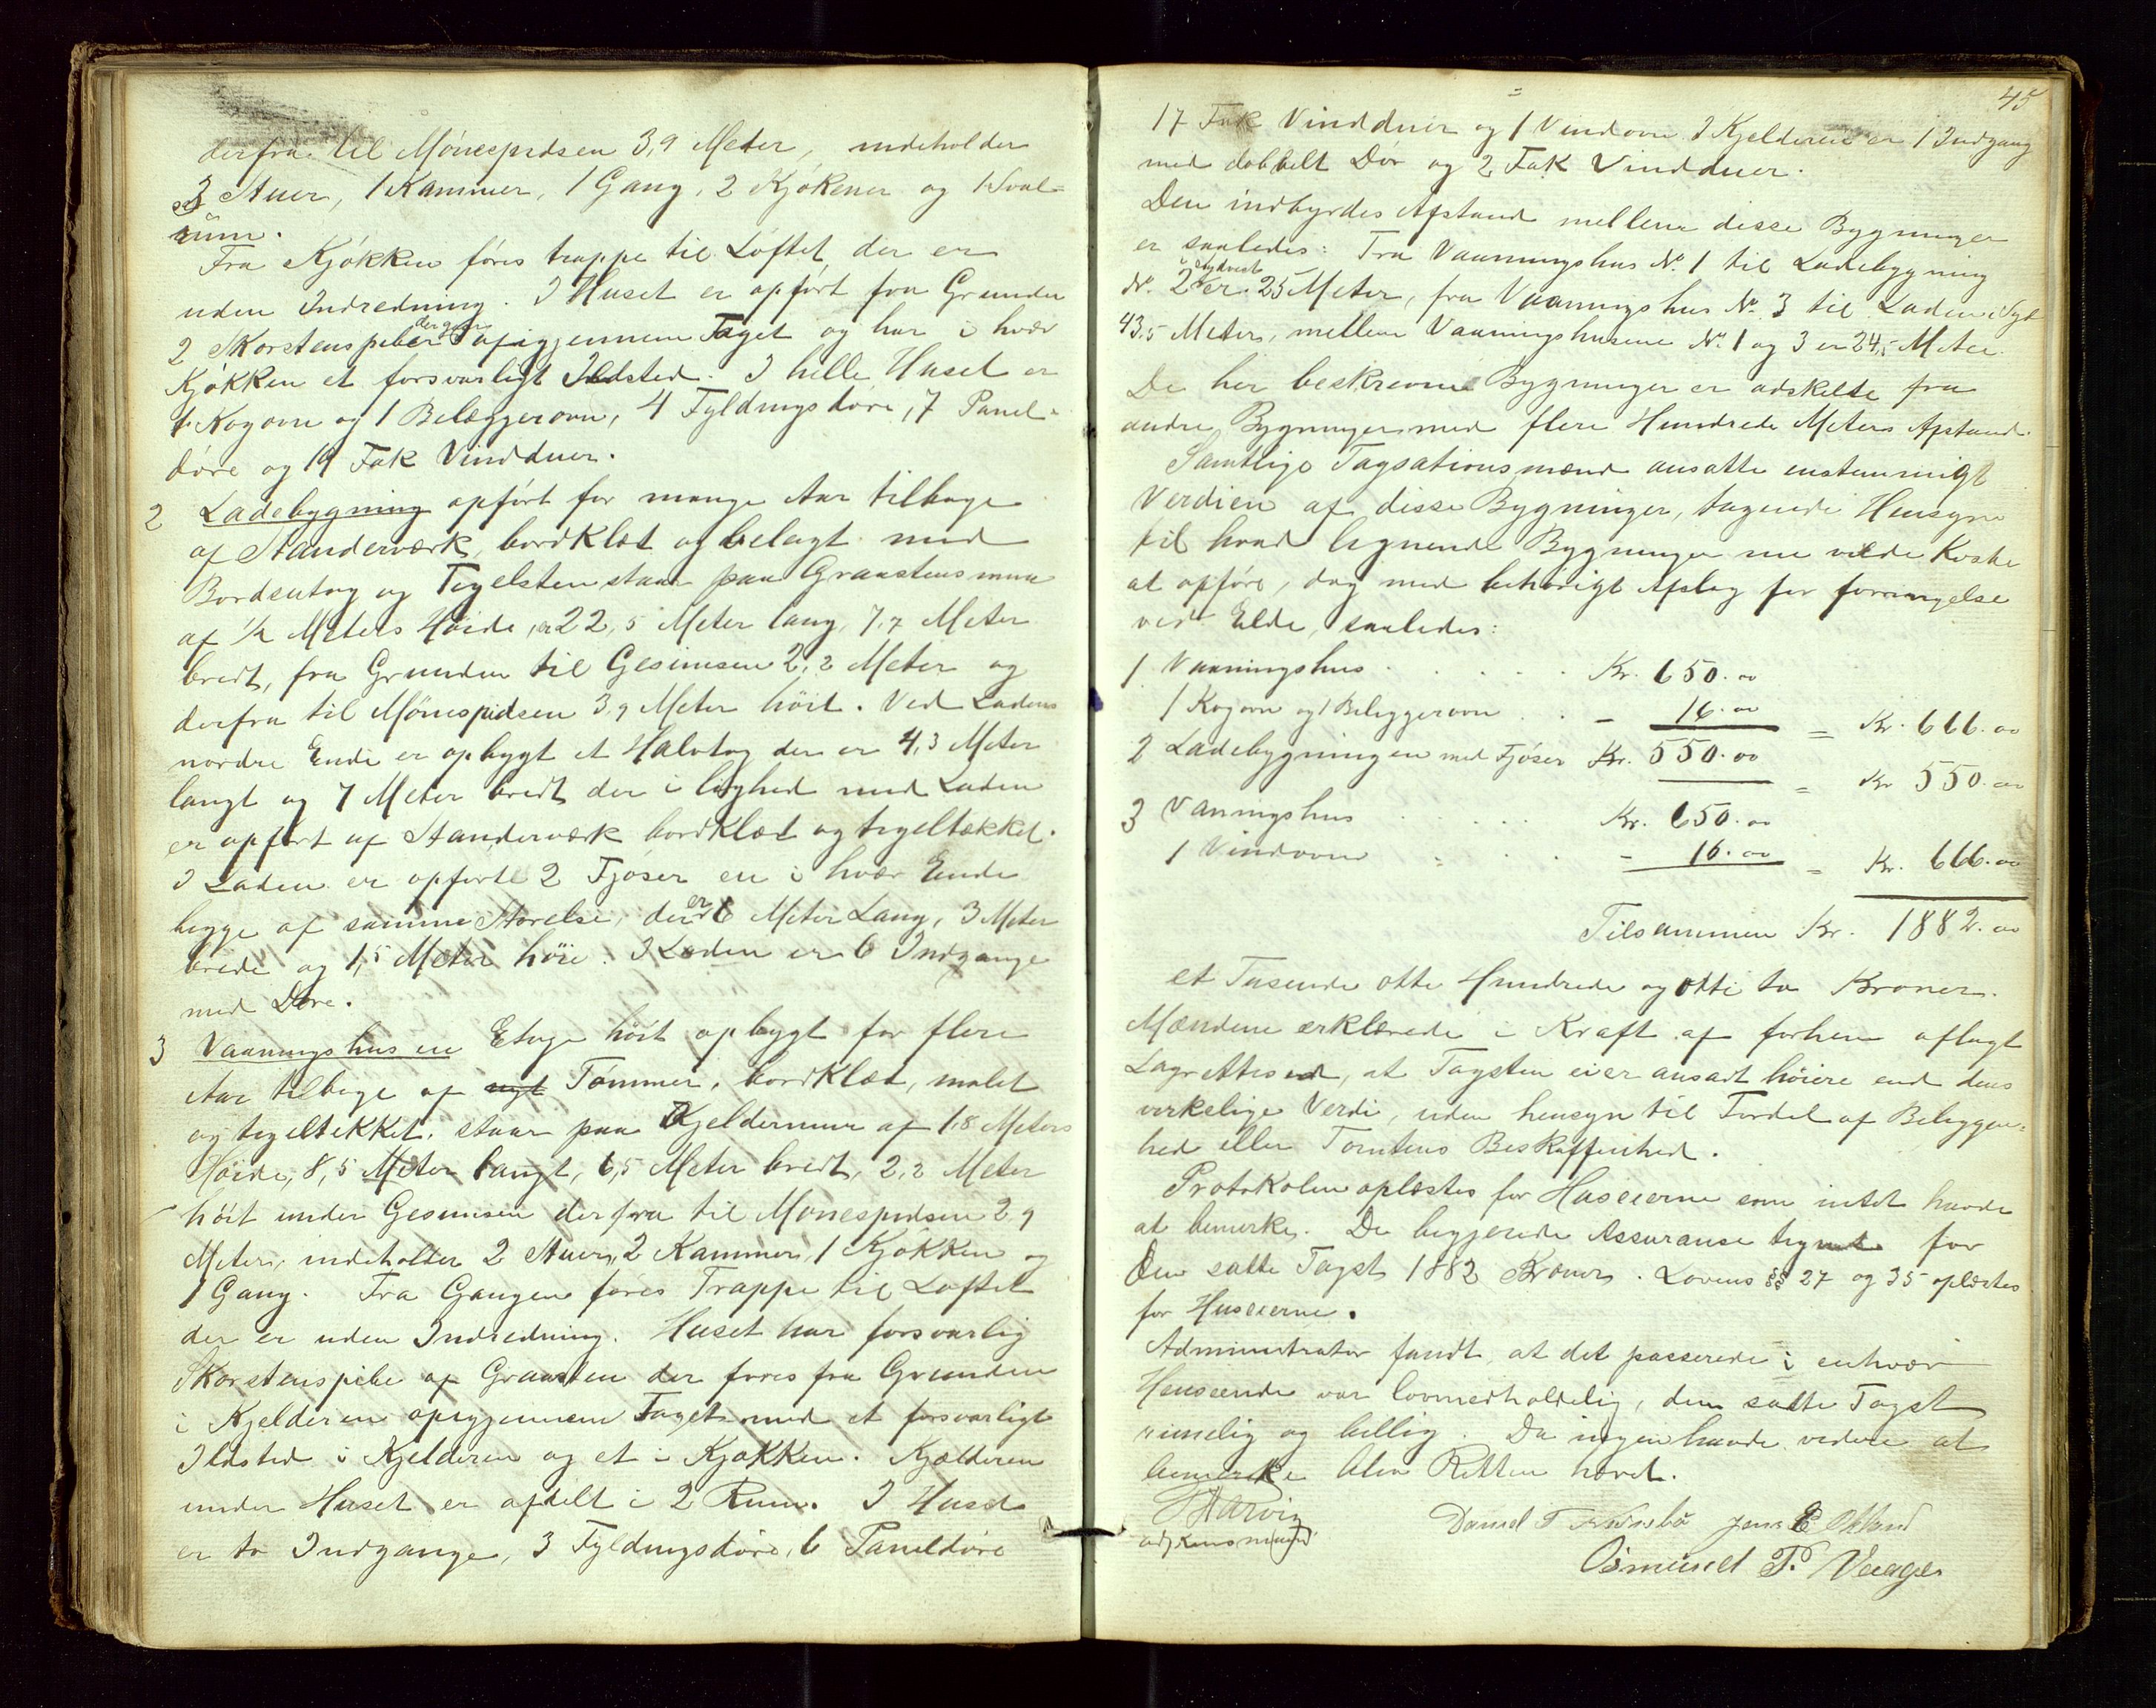 derfra til Mönespidsen 3,9 Meter, indeholder
3 Stuer, 1 Kammer, 1 Gang, 2 Kjökener og 1 Sval-
rüm.
Fra Kjökken föres trappe til Loftet der er
uden Indredning. I Huset er opfört fra Grunden
2 Skorstenspiber der gaar opigjennem Taget og har i hvær
Kjökken et forsvarligt Ildsted. I helle Huset er
1 Kogovn og 1 Belæggerovn, 4 Fyldings döre, 7 Panel-
döre og 19 Fak Vindduer.
2 Ladebygning opfört for mange Aar tilbage
af Standerværk, bordklæt og belagt med
Bordsutag og Tegelsten staar paa Graastensmur
af 1/2 Meters Höide, er 22,5 Meter lang, 7,7 Meter
bredt, fra Grunden til Gesimsen 2,2 Meter og
derfra til Mönespidsen 3,9 Meter höit. Ved Ladens
nordre Ende er opbygt et Halvtag der er 4,3 Meter
langt og 7 Meter bredt der i lighed med Laden
er opfört af Standerværk bordklæt og tegeltækket.
I Laden er opförte 2 Fjöser en i hvær Ende
begge af samme Störelse, der er 6 Meter Lang, 3 Meter
brede og 1,5 Meter höie. I Laden er 6 Indgange
med Döre.
3 Vaaningshus en Etage höit opbygt for flere
Aar tilbage af nyt Tömmer, bordklæt, malet
og tegeltekket, staar paa Kjeldermur af 1,8 Meters
Höide, 8,5 Meter langt, 6,5 Meter bredt, 2,2 Meter
höit under Gesimsen derfra til Mönespidsen 2,9
Meter, indeholder 2 Stuer, 2 Kammer, 1 Kjökken og
1 Gang. Fra Gangen föres Trappe til Loftet
der er uden Indredning. Huset har forsvarlig
Skorstenspibe af Graasten der föres fra Grunden
i Kjelderen opigjennem Taget med et forsvarligt
Ildsted i Kjelderen og et i Kjökken. Kjælderen
under Huset er afdelt i 2 Rum. I Huset
er to Indgange, 3 Fyldingsdöre, 6 Paneldöre
45
17 Fak Vindduer og 1 Vindovn I Kjelderen er 1 Indgang
med dobbelt Dör og 2 Fak Vindduer.
Den indbyrdes Afstand mellem disse Bygninger
er saaledes: Fra Vaaningshus No. 1 til Ladebygning
No. 2 i Sydvest er 25 Meter, fra Vaaningshus No. 3 til Laden i Syd
43,5 Meter, mellem Vaaningshusene No. 1 og 3 er 24,5 Meter.
De her beskrevne Bygninger er adskelte fra
andre Bygninger med flere Hundrede Meters Afstand.
Samtlige Tagsationsmænd ansatte enstemmigt
Verdien af disse Bygninger, tagende Hensyn
til hvad lignende Bygninger nu vilde Koste
at opföre, dog med behörigt Afslag for forringelse
ved Elde, saaledes:
1 Vaaningshus . . . . . Kr. 650.00
1 Kogovn og 1 Beleggerovn . . - 16.00 = Kr. 666.00
2 Ladebygningen med Fjöser Kr. 550.00 = Kr 550.00
3 Vaningshus . . . . . Kr. 650.00
1 Vindovn . . . - 16.00 = Kr. 666.00
Tilsammen Kr. 1882.00
et Tusende otte Hundrede og otti to Kroner.
Mændene erklærede i Kraft af forhen aflagt
Lagrettesed, at Tagsten ei er ansadt höiere end dens
verkelige Verdi, uden hensyn til Fordel af Beliggen-
hed eller Tomtens Beskaffenhed.
Protokolen oplæstes for Huseierne som intet havde
at bemerke. De begjerede Assuranse tegnet for
den satte Tagst 1882 Kroner. Lovens §§ 27 og 35 oplæstes
for Huseierne.
Administrator fandt, at det passerede i enhvær
Henseende var lovmedholdelig, den satte Tagst
rimelig og billig. Da ingen havde videre at
bemerke blev Retten hævet.
Daniel T Jens E Økland
Osmund T. Vaage